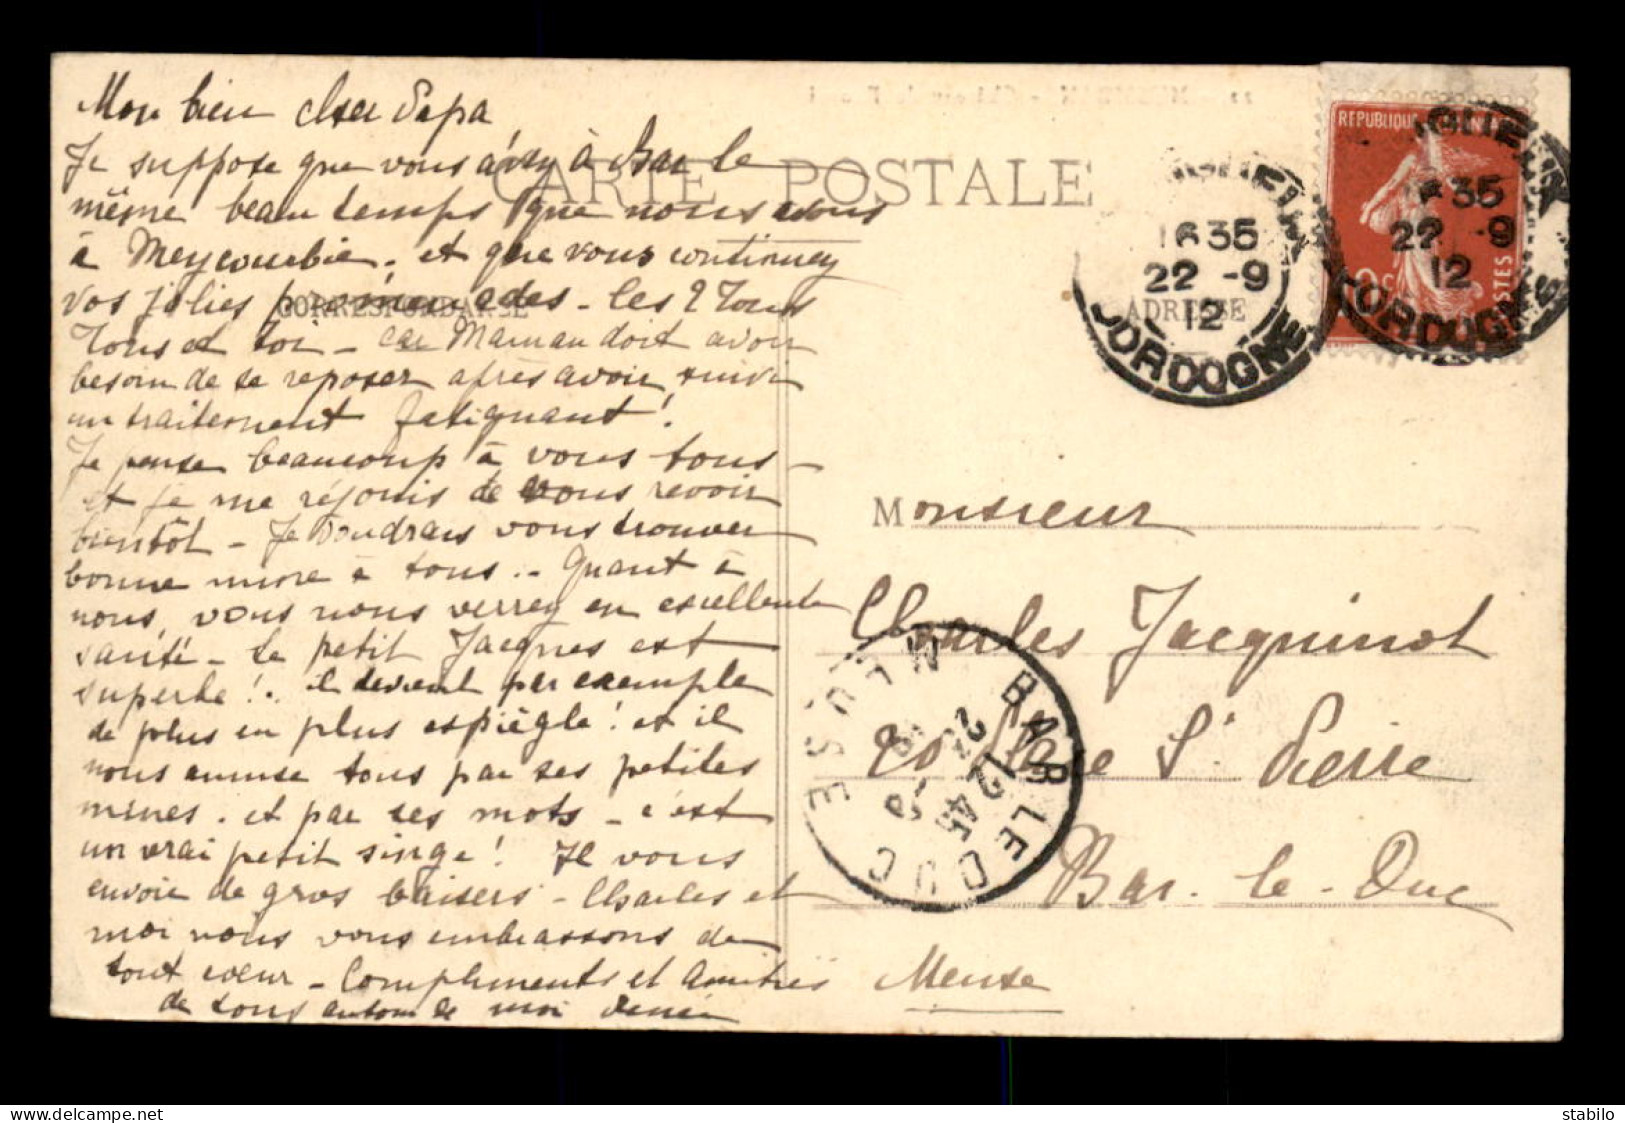 Mon bien cher Papa
Je suppose que vous avez à Bar le
même beau temps que nous avons
à Meycourbie. et que vous continuez
vos jolies promenades - les 2 Tous
Tous et toi - car Maman doit avoir
besoin de se reposer après avoir suivi
un traitement fatigant !
Je pense beaucoup à vous tous -
et je me réjouis de vous revoir
bientôt - Je voudrais vous trouver
bonne mine à tous .. Quant à
nous, vous nous verrez en excellente
santé - Le petit Jacques est
superbe ! . il devient par exemple
de plus en plus espiègle ! et il
nous amuse tous par ses petites
mines . et par ses mots - c'est
un vrai petit singe ! Il vous
envoie de gros baisers - Charles et
moi nous vous embrassons de
tout coeur - Compliments et amitiés
de tous autour de moi
CARTE POSTALE
CORRESPONDANCE
ADRESSE
REPUBLIQUE
10c
POSTES
1635
22 - 9
12
DORDOGNE
1635
22 - 9
12
DORDOGNE
Monsieur
Charles Jacquinot
Place St Pierre
Bar-le-Duc
Meuse
BAR LE DUC
MEUSE
delcampe.net
stabilo